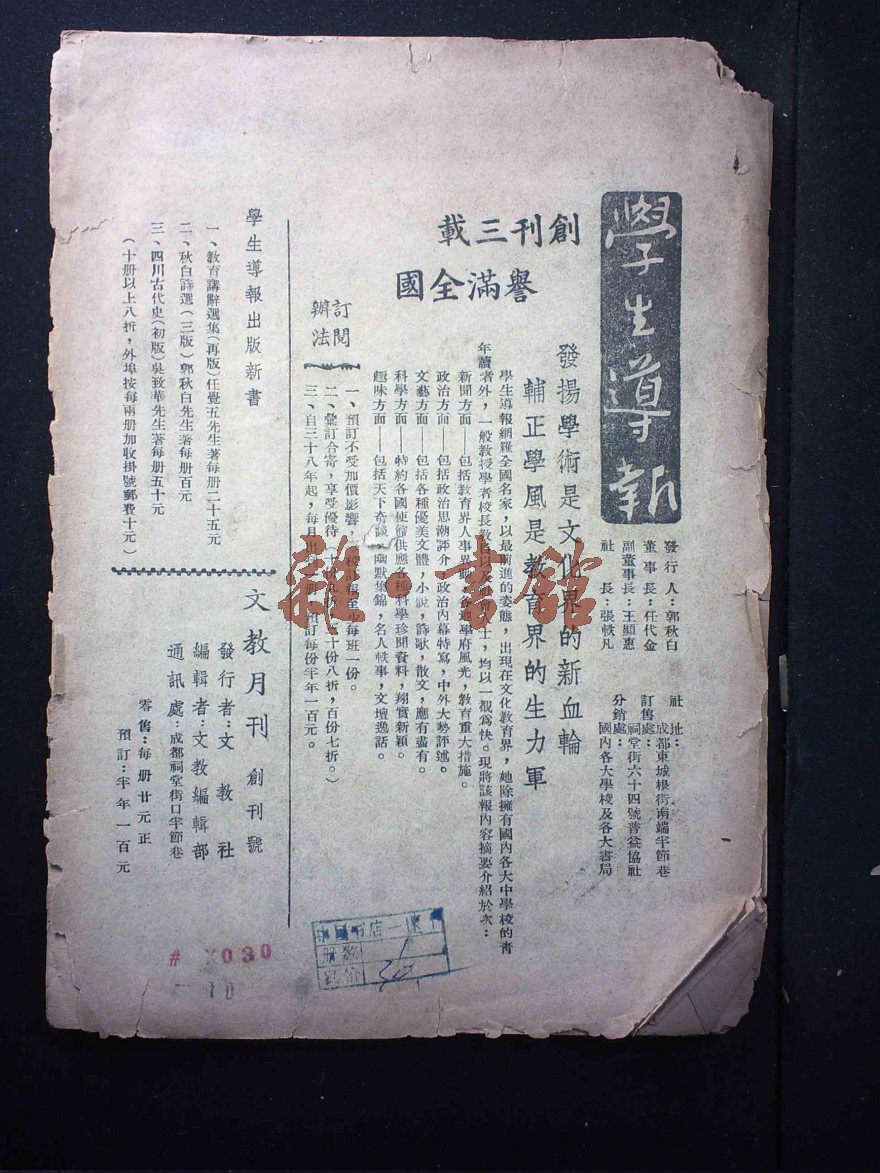 學生導報
發行人：郭秋白
董事長：任代金
副董事長：王顯惠
社　長：張軼凡
社　址：成都東城根街南端半節巷
訂售處：祠堂街六十四號普益協社
分銷處：國內各大學校及各大書局
創刊三載
譽滿全國
發揚學術是文化界的新血輪
輔正學風是教育界的生力軍
學生導報網羅全國名家，以最前進的姿態，出現在文化教育界，她除擁有國內各大中學校的青
年讀者外，一般教授學者校長教員以及 士，均以一覩爲快。現將該報內容摘要介紹於次：
新聞方面——包括教育界人事異動，各地學府風光，教育重大措施。
政治方面——包括政治思潮評介，政治內幕特寫，中外大勢評述。
文藝方面——包括各種優美文體，小說，詩歌，散文，應有盡有。
科學方面——特約各國使館供應各種科學珍聞資料，翔實新穎。
趣味方面——包括天下奇談，幽默集錦，名人軼事，文壇逸話。
訂閱
辦法
一、預訂不受加價影響， 校訂報至少每班一份。
二、彙訂合寄，享受優待（十份九折，五十份八折，百份七折。）
三、自三十八年起，每月出 預訂每份半年一百元。
學生導報出版新書
一、教育講辭選集（再版）任覺五先生著每册二十五元
二、秋白詩選（三版）郭秋白先生著每册百元
三、四川古代史（初版）吳致華先生著每册五十元
（十册以上八折，外埠按每兩册加收掛號郵費十元）
文教月刊 創刊號
發行者：文教社
編輯者：文教編輯部
通訊處：成都祠堂街口半節巷
零售：每册廿元正
預訂：半年一百元
册數 1
# X030
10
雜·書館